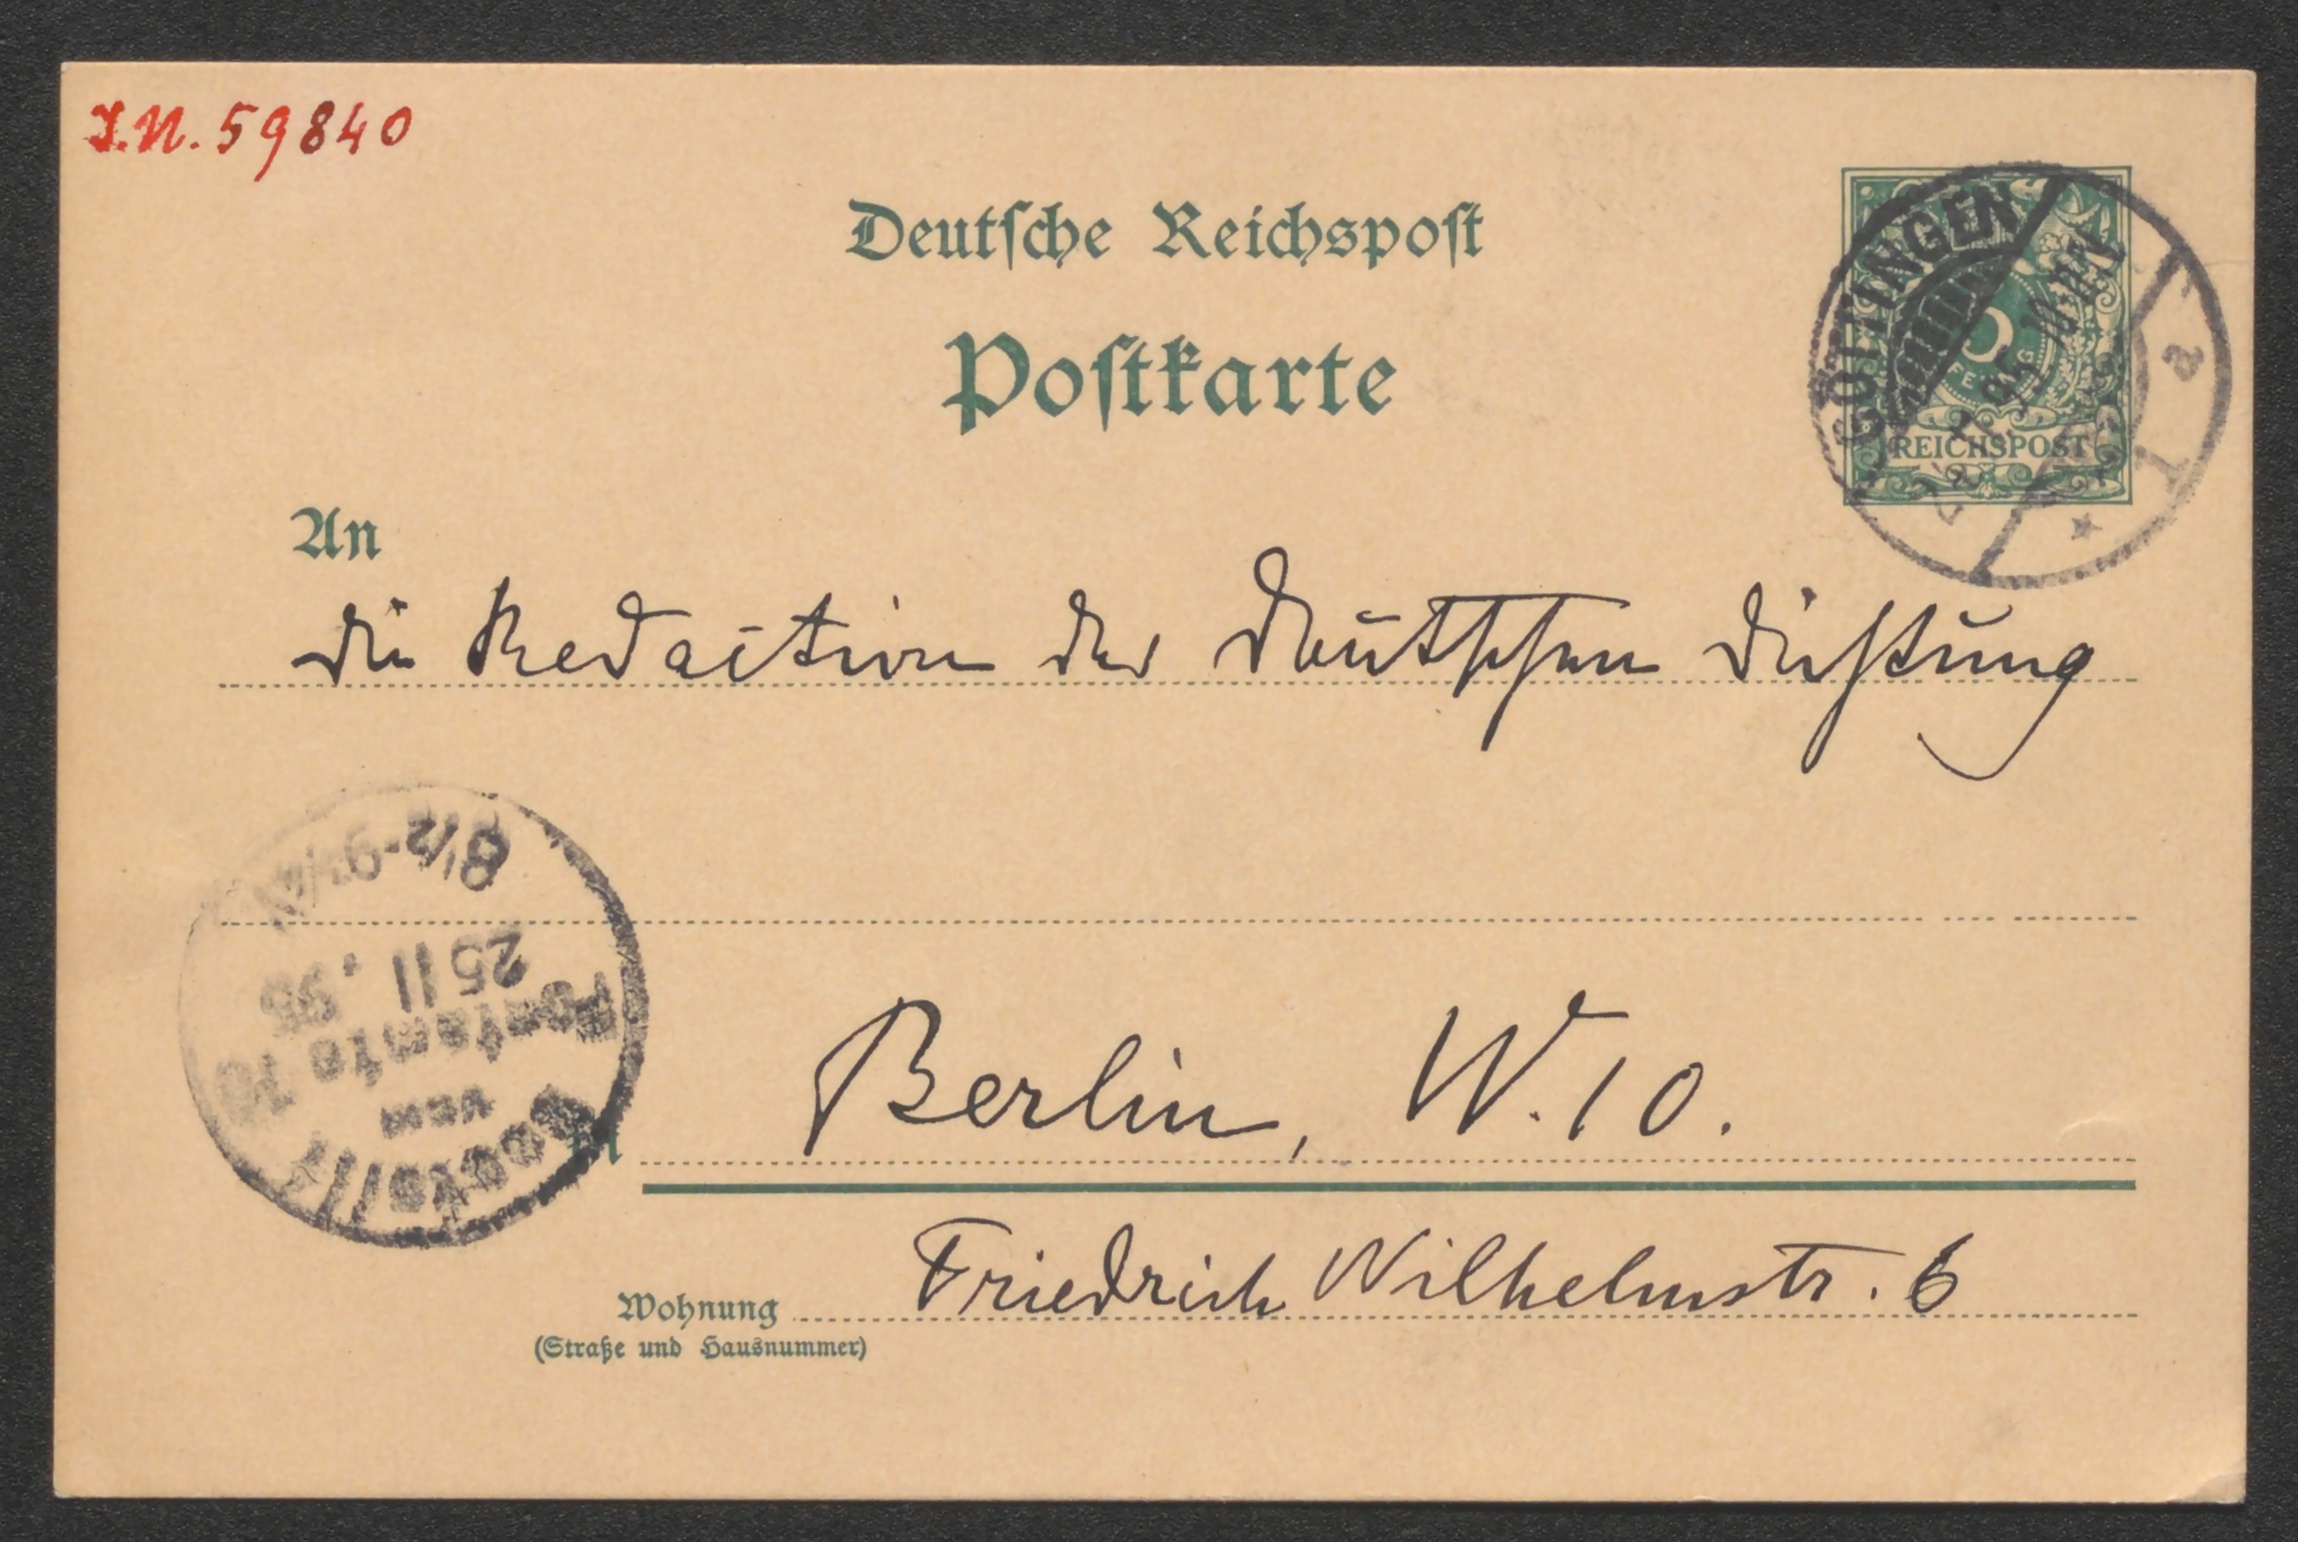 I.N. 59840
Deutsche Reichspost
Postkarte
GÖTTINGEN
95
REICHSPOST
An
die Redaction der Deutschen Dichtung
8 1/2-9 1/2 N
25 11 . 95
Postamte 10
vom
Bestellt
in
Berlin, W. 10.
Friedrich Wilhelmstr. 6
Wohnung
(Straße und Hausnummer)